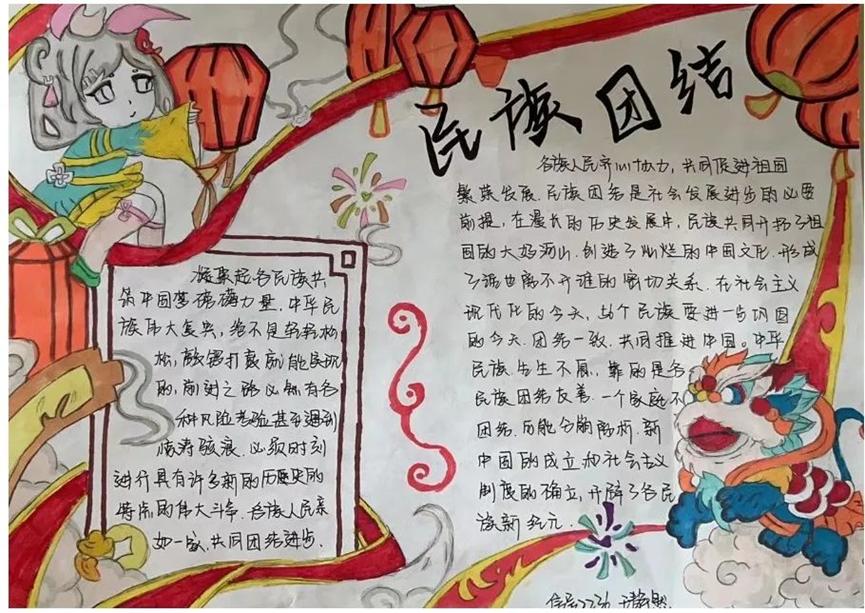 民族团结
各族人民齐心协力，共同促进祖国
繁荣发展.民族团结是社会发展进步的必要
前提，在漫长的历史发展中，民族共同开拓了祖
国的大好河山.创造了灿烂的中国文化.形成
了谁也离不开谁的密切关系.在社会主义
现代化的今天，56个民族要进一步巩固
的今天.团结一致.共同推进中国。中华
民族.生生不息，靠的是各
民族团结友善.一个家庭不
团结.可能分崩离析.新
中国的成立和社会主义
制度的确立，开辟了各民
族新纪元.
凝聚起各民族共
筑中国梦磅礴力量.中华民
族伟大复兴，绝不是轻轻松
松，敲锣打鼓就能实现
的，前进之路必然有各
种风险考验甚至遇到
惊涛骇浪.必须时刻
进行具有许多新的历史的
特点的伟大斗争.各族人民亲
如一家，共同团结进步.